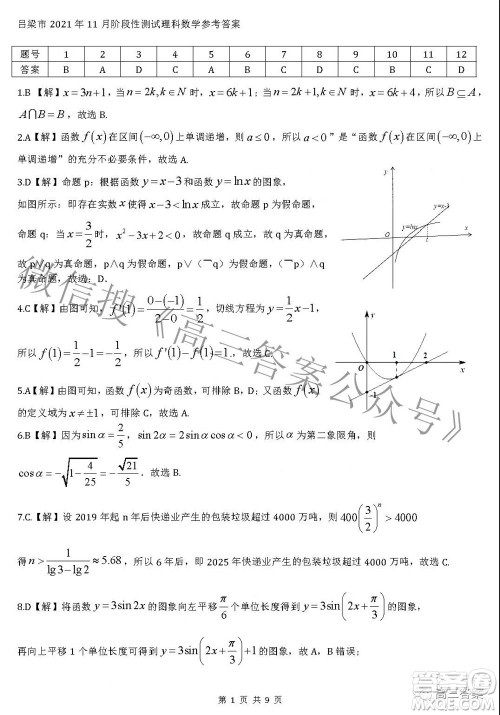 吕梁市 2021 年 11 月阶段性测试理科数学参考答案
题号 1 2 3 4 5 6 7 8 9 10 11 12
答案 B A D C A B C D A D C B
1.B【解】x=3n+1，当 n=2k,k∈N 时，x=6k+1；当 n=2k+1,k∈N 时，x=6k+4，所以 B⊆A，
A⋂B=B，故选 B.
2.A【解】函数 f(x) 在区间 (−∞,0) 上单调递增，则 a≤0，所以 a<0”是“函数 f(x) 在区间 (−∞,0) 上
单调递增”的充分不必要条件，故选 A.
3.D【解】命题 p：根据函数 y=x−3 和函数 y=lnx 的图象，
如图所示：即存在实数 x 使得 x−3<lnx 成立，故命题 p 为假命题，
命题 q：当 x=3/2 时，x²−3x+2<0，故命题 q 为真命题，
故 p∨q 为真命题，p∧q 为假命题，p∨(￢q)为假命题，p∧(￢q)为假命题，(￢p)∧q
为真命题，故选：D.
y
y=x-3
y=lnx
O
x
4.C【解】由图可知，f'(1)=(0−(−1))/(2−0)=1/2，切线方程为 y=1/2x−1，
所以 f(1)=1/2−1=−1/2，所以 f'(1)−f(1)=1．故选 C.
y
O 1 2 x
-1
5.A【解】由图可知，函数 f(x) 为奇函数，可排除 B，D；又函数 f(x)
的定义域为 x≠±1，可排除 C，故选 A.
6.B【解】因为 sinα=2/5，sin2α=2sinαcosα<0，所以 α 为第二象限角，则
cosα=−√(1−4/25)=−√21/5．故选 B.
7.C.【解】设 2019 年起 n 年后快递业产生的包装垃圾超过 4000 万吨，则 400(3/2)ⁿ>4000
得 n>1/(lg3−lg2)≈5.68，所以 6 年后，即 2025 年快递业产生的包装垃圾超过 4000 万吨，故选 C.
8.D【解】将函数 y=3sin2x 的图象向左平移 π/6 个单位长度，得到 y=3sin(2x+π/3) 的图象，
再向上平移 1 个单位长度，得到 y=3sin(2x+π/3)+1 的图象，故 A，B 错误；
第 1 页 共 9 页
微信搜《高三答案公众号》
高三答案